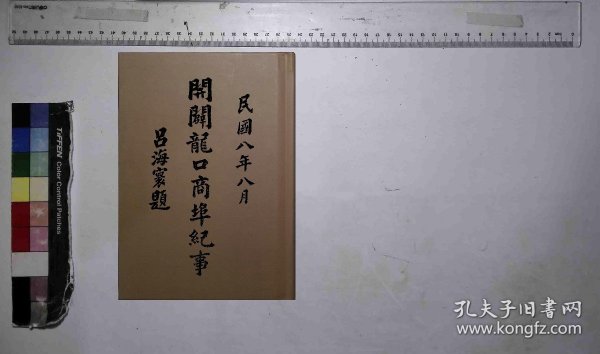 民國八年八月
開闢龍口商埠紀事
呂海寰題
TIFFEN Color Control Patches
孔夫子旧书网
www.kongfz.com